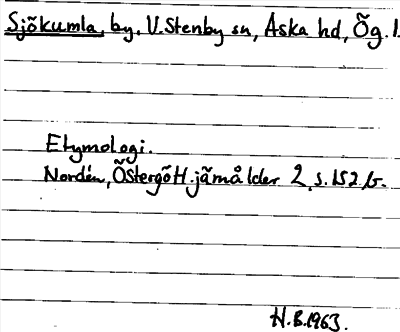 Sjökumla, by, V. Stenby sn, Aska hd, Ög. l.
Etymologi.
Nordén, Östergötl. järnålder 2, s. 152 b.
H.B. 1963.